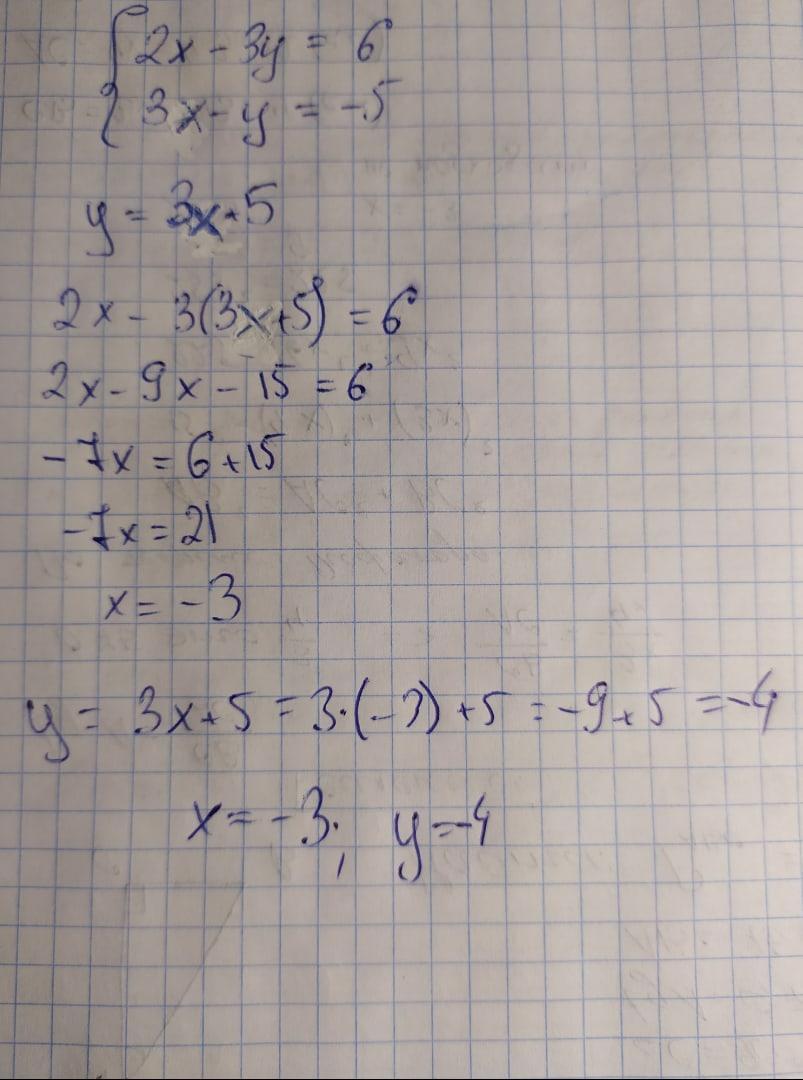 {2x - 3y = 6
3x - y = -5
y = 3x + 5
2x - 3(3x+5) = 6
2x - 9x - 15 = 6
-7x = 6 + 15
-7x = 21
x = -3
y = 3x + 5 = 3·(-3) + 5 = -9 + 5 = -4
x = -3; y = -4